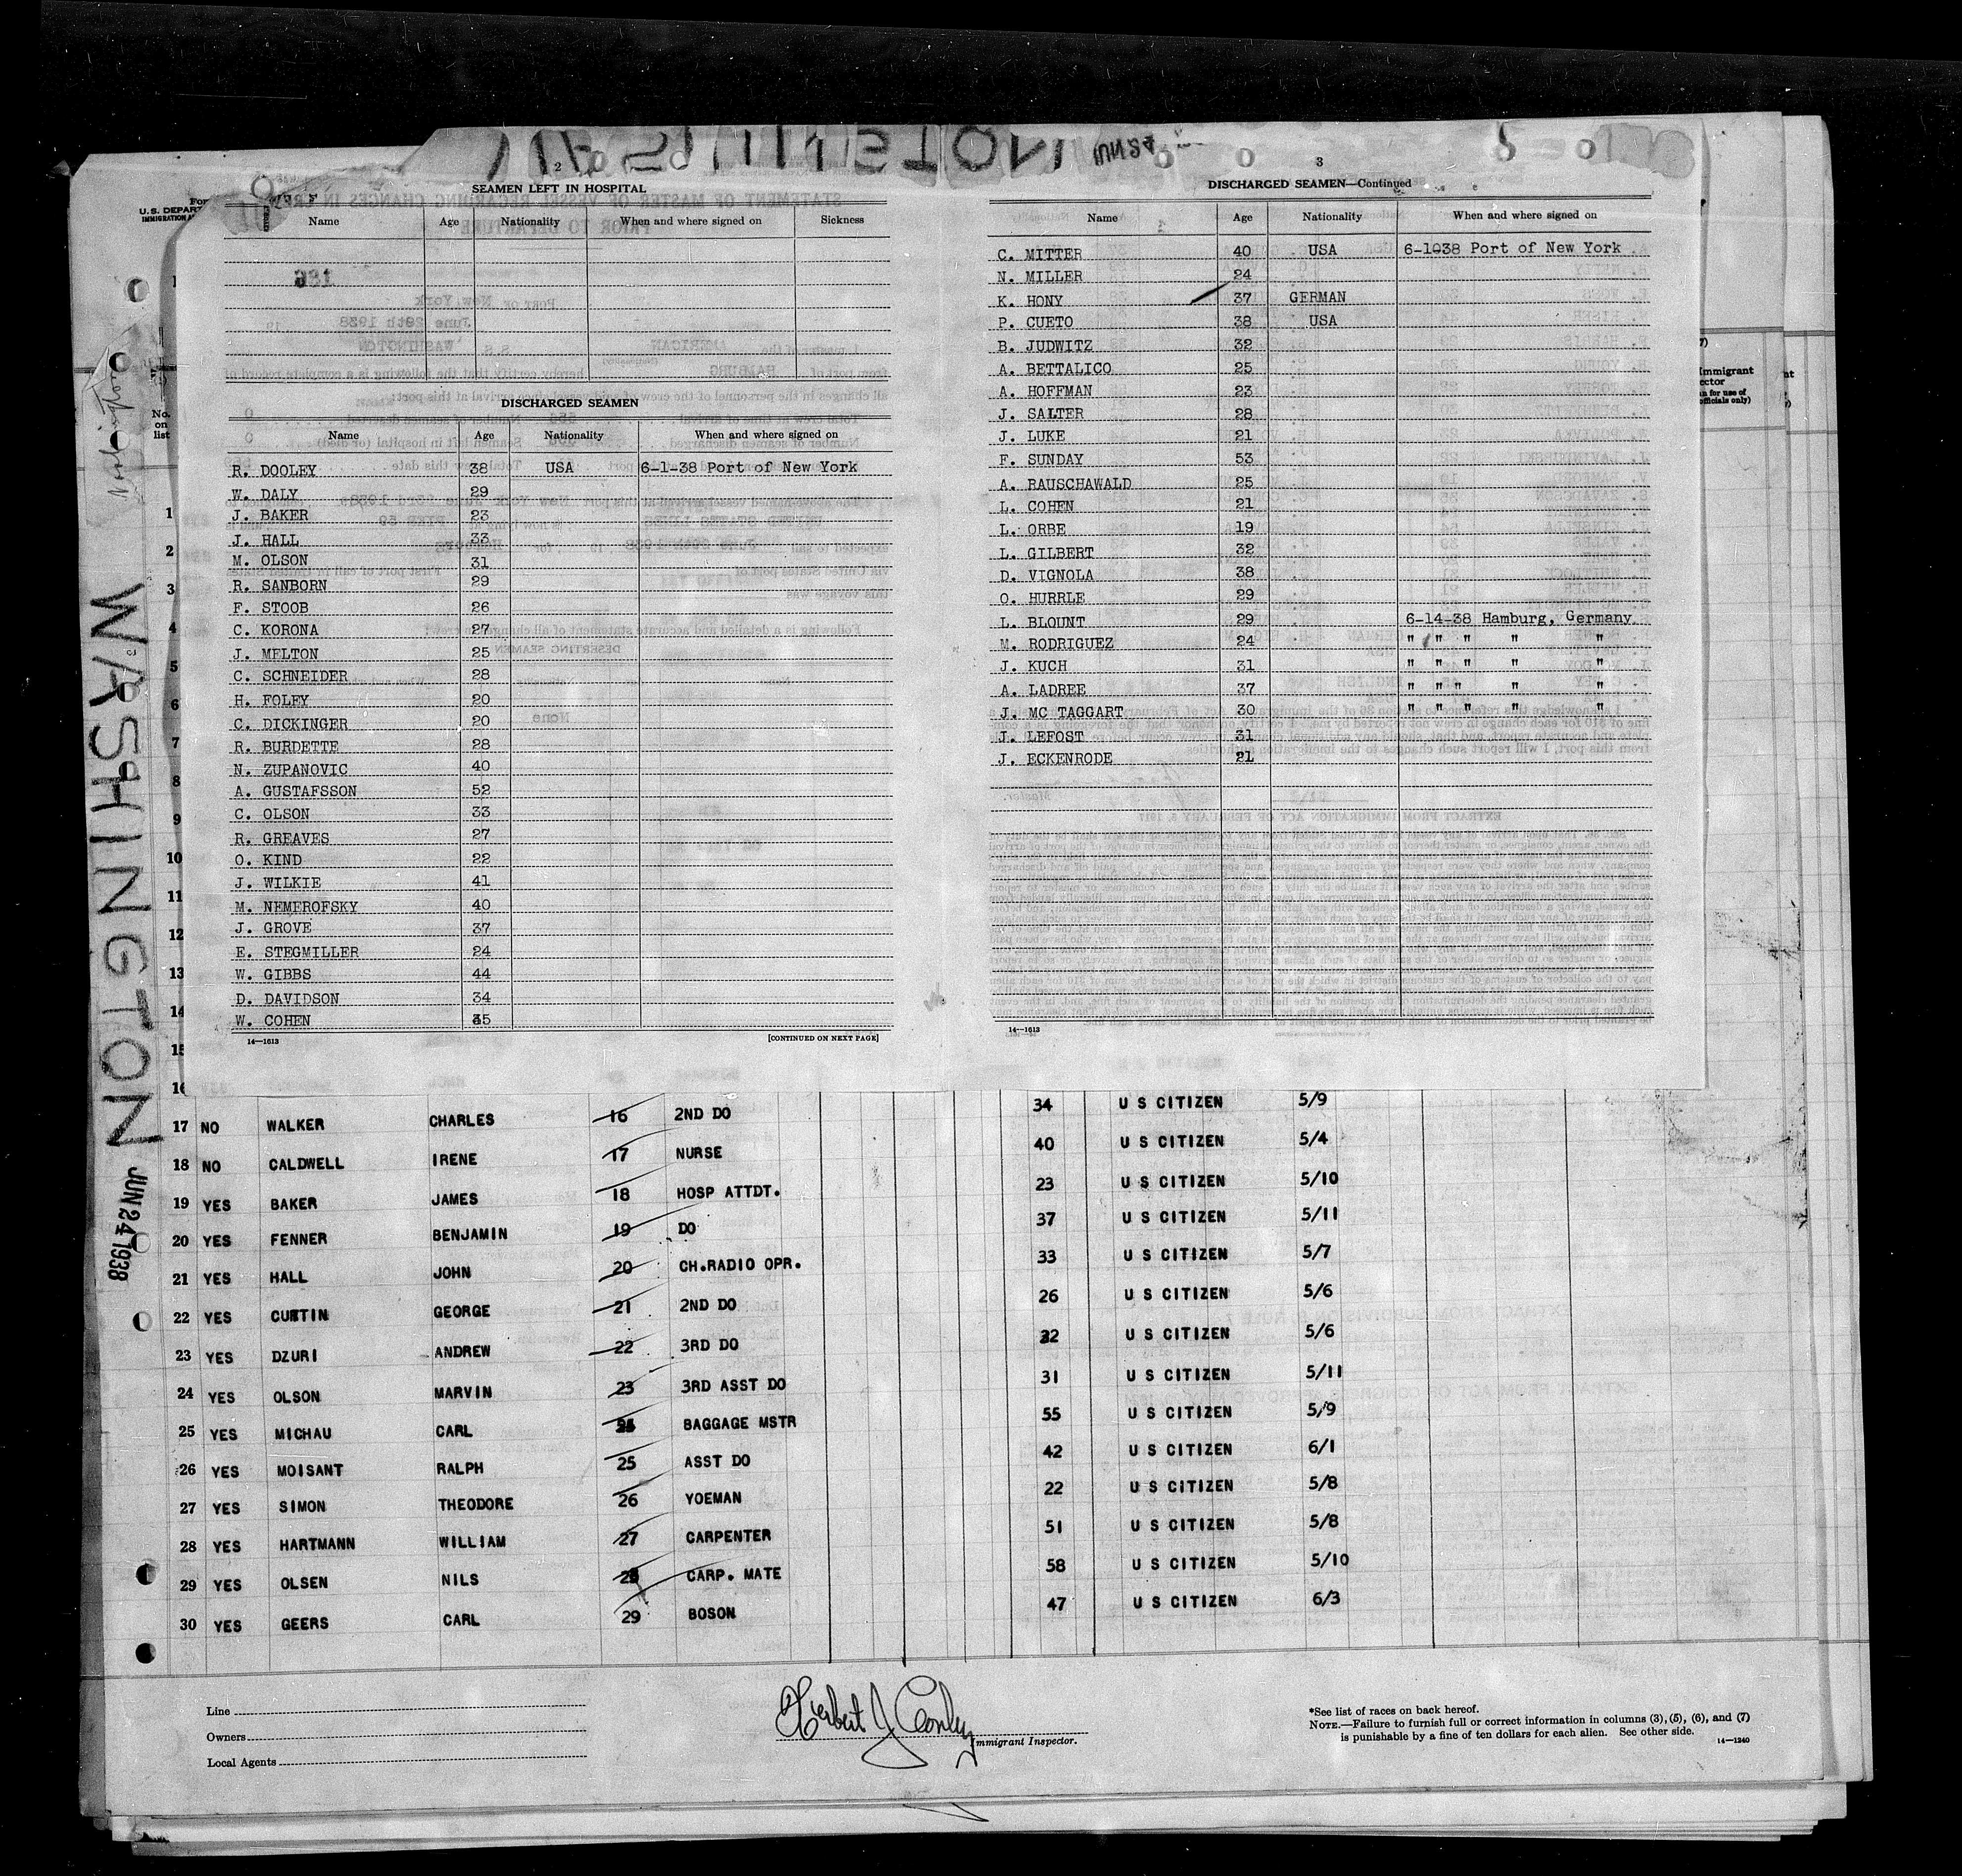 2
SEAMEN LEFT IN HOSPITAL
Name Age Nationality When and where signed on Sickness
DISCHARGED SEAMEN
Name Age Nationality When and where signed on
R. DOOLEY 38 USA 6-1-38 Port of New York
W. DALY 29
J. BAKER 23
J. HALL 33
M. OLSON 31
R. SANBORN 29
F. STOOB 26
C. KORONA 27
J. MELTON 25
C. SCHNEIDER 28
H. FOLEY 20
C. DICKINGER 20
R. BURDETTE 28
N. ZUPANOVIC 40
A. GUSTAFSSON 52
C. OLSON 33
R. GREAVES 27
O. KIND 22
J. WILKIE 41
M. NEMEROFSKY 40
J. GROVE 37
E. STEGMILLER 24
W. GIBBS 44
D. DAVIDSON 34
W. COHEN
14—1613 [CONTINUED ON NEXT PAGE]
3
DISCHARGED SEAMEN—Continued
Name Age Nationality When and where signed on
C. MITTER 40 USA 6-1038 Port of New York
N. MILLER 24
K. HONY 37 GERMAN
P. CUETO 38 USA
B. JUDWITZ 32
A. BETTALICO 25
A. HOFFMAN 23
J. SALTER 28
J. LUKE 21
F. SUNDAY 53
A. RAUSCHAWALD 25
L. COHEN 21
L. ORBE 19
L. GILBERT 32
D. VIGNOLA 38
O. HURRLE 29
L. BLOUNT 29 6-14-38 Hamburg, Germany
M. RODRIGUEZ 24 " " " " "
J. KUCH 31 " " " " "
A. LADREE 37 " " " " "
J. MC TAGGART 30 " " " " "
J. LEFOST 31
J. ECKENRODE 21
14—1613
U.S. DEPART
No. on list
1
2
3
4
5
6
7
8
9
10
11
12
13
14
15
16
Washington
WASHINGTON
JUN 24 1938
Immigrant
17 NO WALKER CHARLES 16 2ND DO 34 U S CITIZEN 5/9
18 NO CALDWELL IRENE 17 NURSE 40 U S CITIZEN 5/4
19 YES BAKER JAMES 18 HOSP ATTDT. 23 U S CITIZEN 5/10
20 YES FENNER BENJAMIN 19 DO 37 U S CITIZEN 5/11
21 YES HALL JOHN 20 CH.RADIO OPR. 33 U S CITIZEN 5/7
22 YES CURTIN GEORGE 21 2ND DO 26 U S CITIZEN 5/6
23 YES DZURI ANDREW 22 3RD DO 22 U S CITIZEN 5/6
24 YES OLSON MARVIN 23 3RD ASST DO 31 U S CITIZEN 5/11
25 YES MICHAU CARL BAGGAGE MSTR 55 U S CITIZEN 5/9
26 YES MOISANT RALPH 25 ASST DO 42 U S CITIZEN 6/1
27 YES SIMON THEODORE 26 YOEMAN 22 U S CITIZEN 5/8
28 YES HARTMANN WILLIAM 27 CARPENTER 51 U S CITIZEN 5/8
29 YES OLSEN NILS 28 CARP. MATE 58 U S CITIZEN 5/10
30 YES GEERS CARL 29 BOSON 47 U S CITIZEN 6/3
Line
Owners
Local Agents
Herbert J Conley
Immigrant Inspector.
*See list of races on back hereof.
NOTE.—Failure to furnish full or correct information in columns (3), (5), (6), and (7)
is punishable by a fine of ten dollars for each alien. See other side.
14—1240